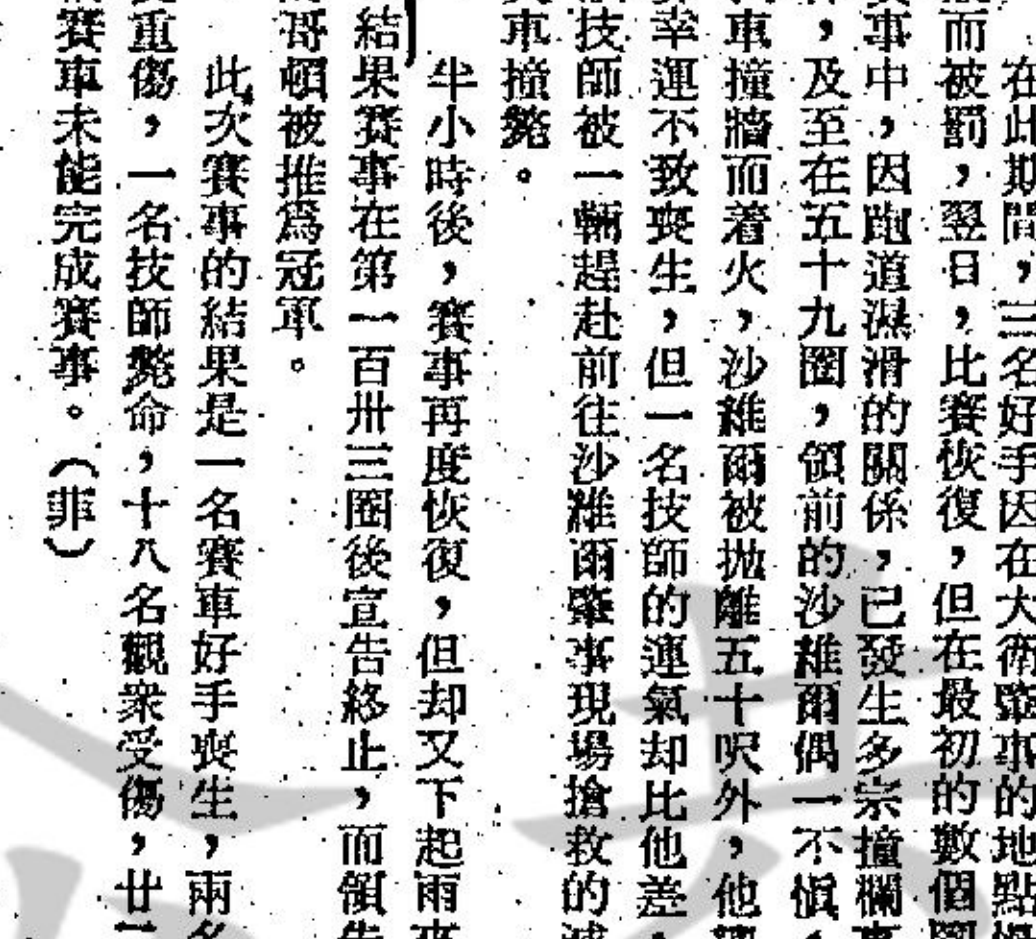 在此期間，三名好手因在大衛肇事的地點
而被罰，翌日，比賽恢復，但在最初的數個圈
事中，因跑道濕滑的關係，已發生多宗撞欄事
，及至在五十九圈，領前的沙維爾偶一不愼，
車撞牆而着火，沙維爾被抛離五十呎外，他
幸運不致喪生，但一名技師的運氣却比他差，
技師被一輛趕赴前往沙維爾肇事現場搶救的滅
車撞斃。
半小時後，賽事再度恢復，但却又下起雨來
結果賽事在第一百卅三圈後宣告終止，而領先
哥頓被推爲冠軍。
此次賽事的結果是一名賽車好手喪生，兩名
重傷，一名技師斃命，十八名觀衆受傷，廿
賽車未能完成賽事。（菲）